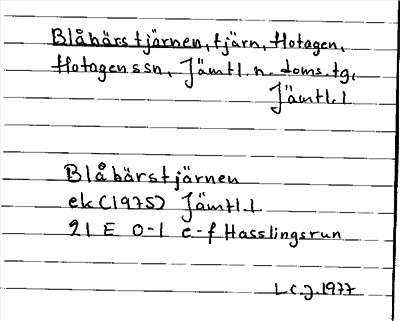 Blåbärstjärnen, tjärn, Hotagen,
Hotagenssn, Jämtl. n. doms.tg,
Jämtl. l
Blåbärstjärnen
ek (1975) Jämtl. l
21 E 0-1 e-f Hasslingsrun
L.C.J. 1977